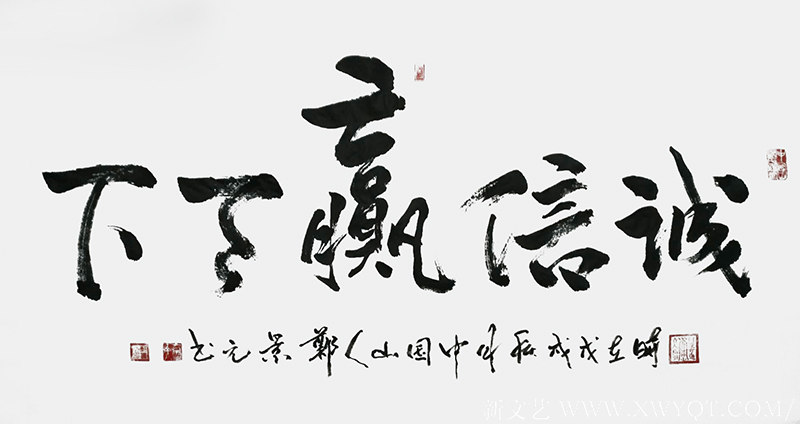 诚信赢天下
時在戊戌秋年中国山人鄭景元书
新文艺 WWW.XWYQT.COM/